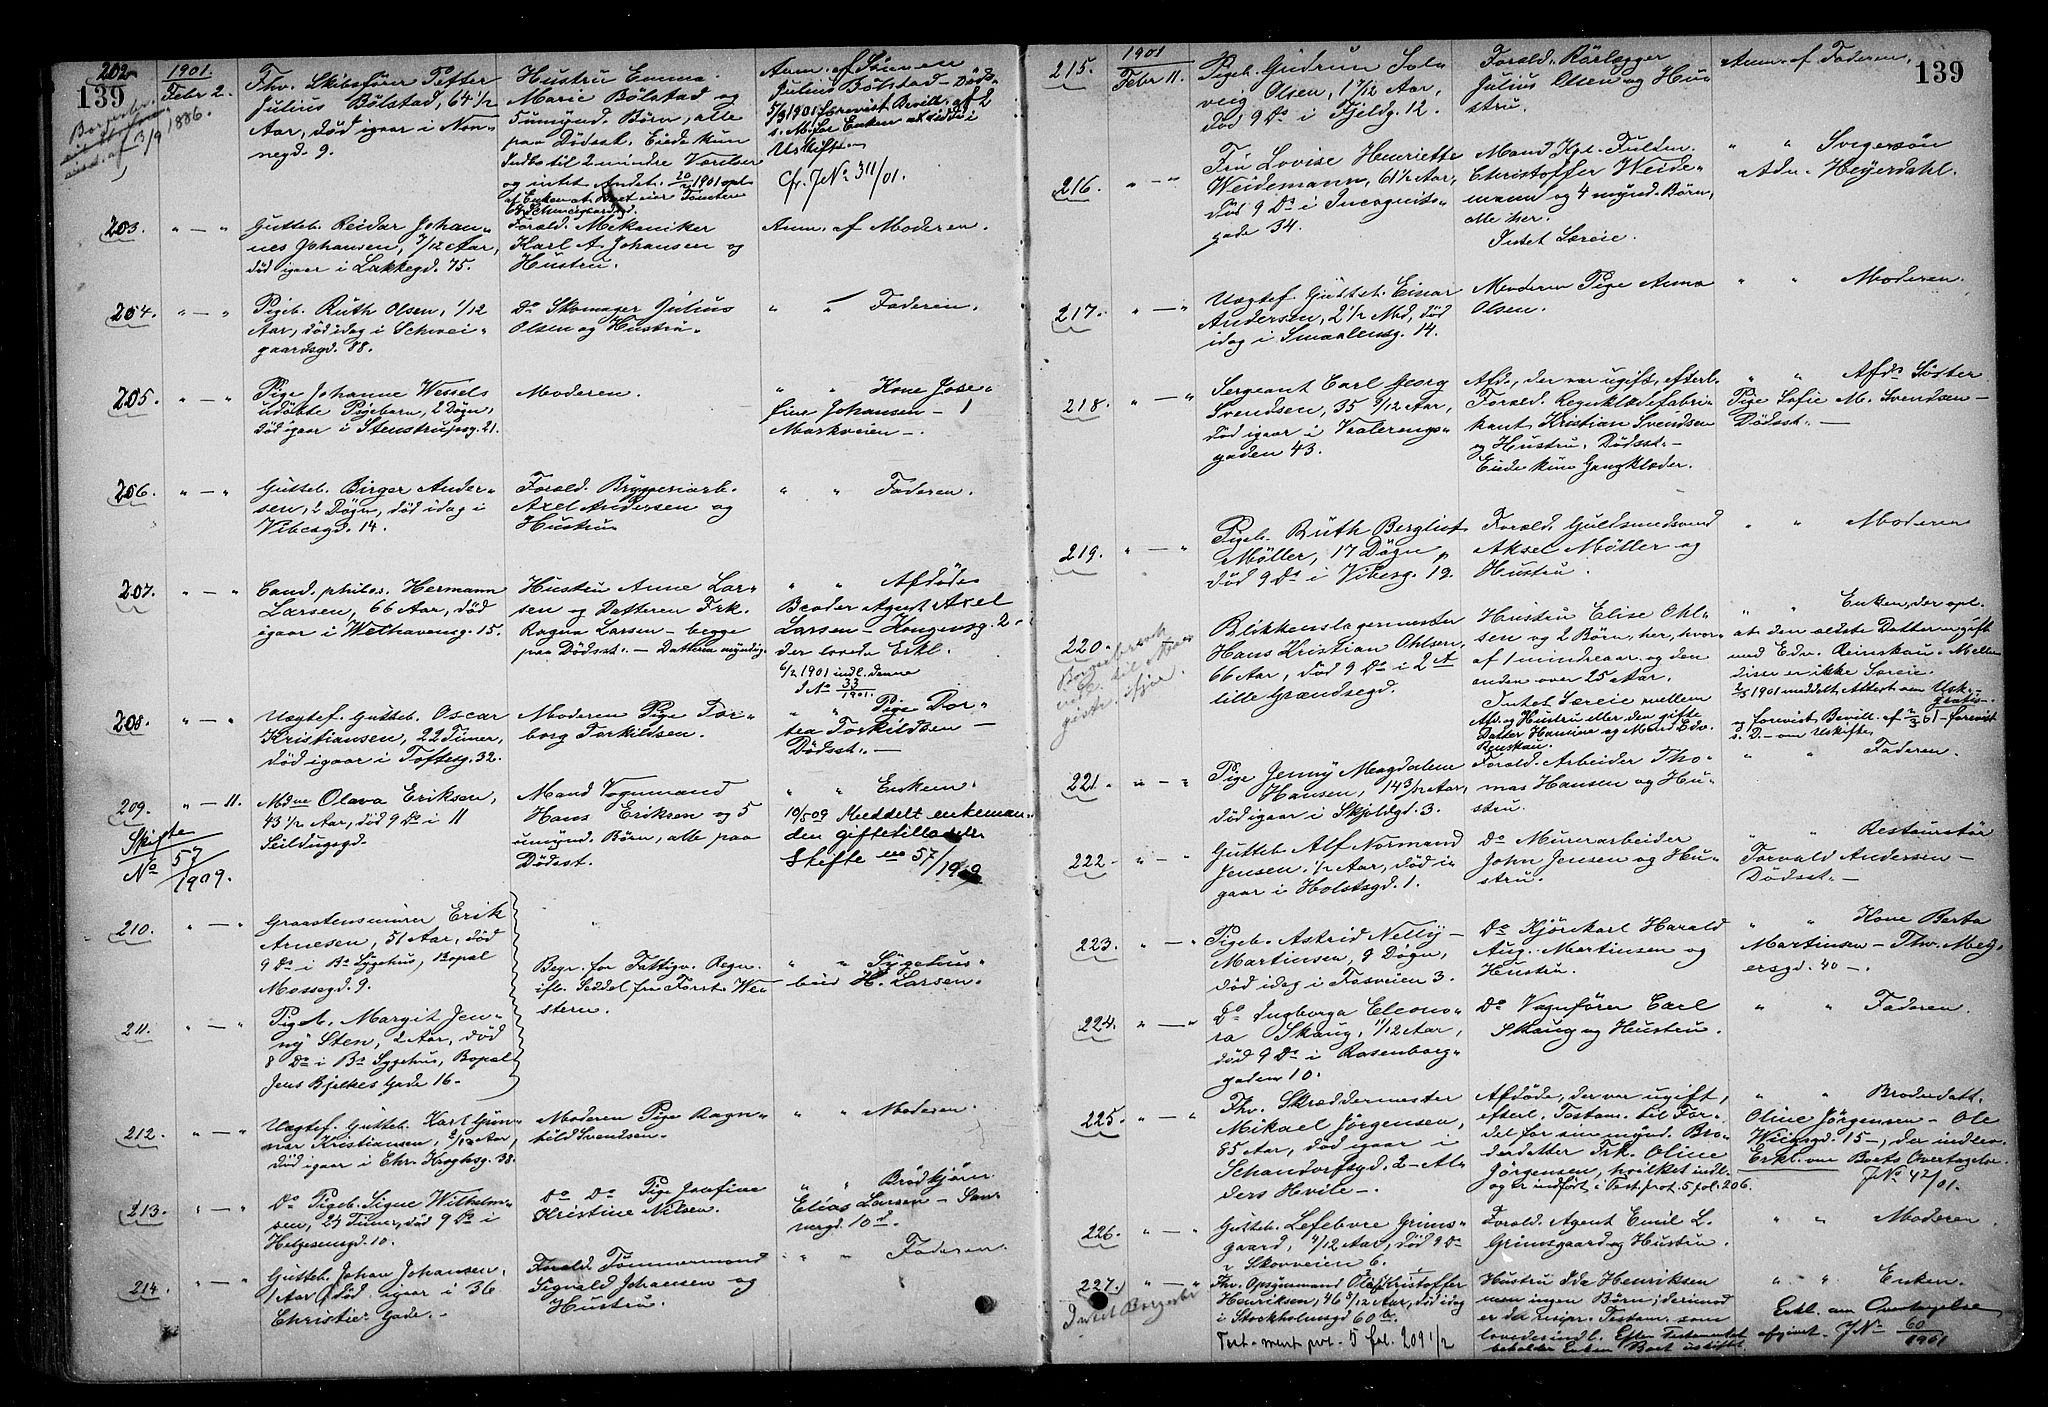 139
202.
1901.
Febr 2.
aust. af 13/9 1886.
Fhv. Skibsfører Petter
Julius Bølstad, 64 1/2
Aar, død igaar i Non-
negd. 9.
Hustru Emma
Marie Bølstad og
5 umynd. Børn, alle
paa Dødsst. Eiede kun
Indbo til 2 mindre Værelser
og intet Andet. 20/ 1901 opl.
af Enken at Boet eier Tomten
Anm. af Sønnen
Julius Bølstad – Døds-
5/3 1901 forevist Bevill. af 2
s. M. for Enken at sidde i
Uskifte
Cfr. JNo 311/01.
203.
" — "
Gutteb. Reidar Johan-
nes Johansen, /12 Aar,
død igaar i Lakkegd. 75.
Forald. Mekaniker
Karl A. Johansen og
Hustru.
Anm. af Moderen.
204.
" — "
Pigeb. Ruth Olsen, 1/12
Aar, død idag i Schwei-
gaardsgd. 88.
Do Skomager Julius
Olsen og Hustru.
" " Faderen.
205.
" — "
Pige Johanne Wessels
udøbte Pigebarn, 2 Døgn,
død igaar i Stenstrupsg. 21.
Moderen.
" " Kone Jose-
fine Johansen – 1
Markveien –.
206.
" — "
Gutteb. Birger Ander-
sen, 2 Døgn, død idag i
Vibesgd. 14.
Forald. Bryggeriarb.
Axel Andersen og
Hustru
" " Faderen.
207.
" — "
Cand. philos. Hermann
Larsen, 66 Aar, død
igaar i Welhavensg. 15.
Hustru Anne Lar-
sen og Datteren Frk.
Ragna Larsen – begge
paa Dødsst. – Datteren myndig.
" " Afdødes
Broder Agent Axel
Larsen – Kongensg. 2 –
der lovede Erkl.
6/2 1901 indl. denne
JNo 33/1901.
208.
" — "
Uægtef. Gutteb. Oscar
Kristiansen, 22 Timer,
død igaar i Toftesg. 32.
Moderen Pige Tor-
borg Torkildsen.
" " Pige Dor-
tea Torkildsen –
Dødsst. –
209.
" — 11.
Skifte
No 57/1909.
Mdme Olava Eriksen,
43 1/2 Aar, død 9 Ds i 11
Heildugsgd.
Mand Vognmand
Hans Eriksen og 5
umynd. Børn, alle paa
Dødsst.
" " Enkem.
19/5 09 Meddelt enkeman-
den giftetilladelse
Skifte no 57/1909
210.
" — "
Graastensmurer Erik
Arnesen, 51 Aar, død
9 Ds i Bs Sygehus, Bopæl
Mossegd. 9.
Begr. for Fattigv. Regn.
ifl. Seddel fra Forst. We-
stern.
" " Sygehus-
bud H. Larsen.
211.
" — "
Pigeb. Margit Jen-
ny Sten, 2 Aar, død
8 Ds i Bs Sygehus, Bopæl
Jens Bjelkes Gade 16.
212.
" — "
Uægtef. Gutteb. Karl Gun-
nar Kristiansen, 2/12 Aar,
død igaar i Chr. Kroghsg. 38.
Moderen Pige Ragn-
hild Svendsen.
" " Moderen.
213.
" — "
Do Pigeb. Signe Wilhelm-
sen, 24 Timer, død 9 Ds i
Helgesensgd. 10.
Do Do Pige Josefine
Kristine Nilsen.
" " Brødkjører
Elias Larsen – San-
nergd. 10 d.
214.
" — "
Gutteb. Johan Johansen,
1 Aar, død igaar i 36
Christies Gade. –
Forald. Tømmermand
Sigvald Johansen og
Hustru.
" " Faderen.
139
215.
1901
Febr 11.
Pigeb. Gudrun Sol-
veig Olsen, 17/12 Aar,
død 9 Ds i Fjeldg. 12.
Forald. Rørlægger
Julius Olsen og Hu-
stru.
Anm. af Faderen.
216.
" — "
Fru Lovise Henriette
Weidemann, 61 1/2 Aar,
død 9 Ds i Incognito-
gade 34.
Mand Kpt. Fuldm.
Christoffer Weide-
mann og 4 mynd. Børn,
alle her.
Intet Særeie.
" " Svigersøn
Adv. Heyerdahl.
217.
" — "
Uægtef. Gutteb. Einar
Andersen, 2 1/2 Md, død
idag i Smaalensg. 14.
Moderen Pige Anna
Olsen.
" " Moderen.
218.
" — "
Sergeant Carl Georg
Svendsen, 35 9/12 Aar,
død igaar i Vaalerengs-
gaden 43.
Afd., der var ugift, efterl.
Forald. Regnklædefabri-
kant Kristian Svendsen
og Hustru, Dødsst. –
Eiede kun Gangklæder.
" " Afds Søster
Pige Sofie M. Svendsen –
Dødsst. –
219.
" — "
Pigeb. Ruth Bergliot
Møller, 17 Døgn,
død 9 Ds i Vibesg. 19.
Forald. Guldsmedsvend
Aksel Møller og
Hustru.
" " Moderen
220.
Blikkenslagermester
Hans Kristian Ohlsen,
66 Aar, død 9 Ds i 2 A
lille Grændsegd.
Hustru Elise Ohl-
sen og 2 Børn, her, hvor-
af 1 mindreaar. og den
anden over 25 Aar.
Intet Særeie mellem
Afd. og Hustru eller den gifte
Datter Hansine og Mand Edv.
Reinskau.
" " Enken, der opl.
at den ældste Datter er gift
med Edv. Reinskau. Mellem
disse er ikke Særeie.
2/3 1901 meddelt Attest om Usk.
gratis –
og forevist Bevill. af 2/3 01 – forevist
s. D. – om Uskifte.
221.
" — "
Pige Jenny Magdalene
Hansen, 14 3/12 Aar,
død igaar i Skjoldgd. 3.
Forald. Arbeider Tho-
mas Hansen og Hu-
stru.
" " Faderen.
222.
" — "
Gutteb. Alf Normand
Jensen, 1/2 Aar, død i-
gaar i Holstsgd. 1.
Do Murerarbeider
John Jensen og Hu-
stru.
" " Restauratør
Torvald Andersen –
Dødsst. –
223.
" — "
Pigeb. Astrid Nelly –
Martinsen, 9 Døgn,
død idag i Fosveien 3.
Do Kjørekarl Harald
Aug. Martinsen og
Hustru.
" " Kone Berta
Martinsen – Thv. Mey-
ersgd. 40 –.
224.
" — "
Do Ingborga Eleono-
ra Skaug, 11/12 Aar,
død 9 Ds i Rosenborg-
gaden 10.
Do Vognfører Carl
Skaug og Hustru.
" " Faderen.
225.
" — "
Fhv. Skræddermester
Mikael Jørgensen,
85 Aar, død igaar i
Schandorfsgd. 2 – Al-
ders Hvile –.
Afdøde, der var ugift,
efterl. Testam. til For-
del for sin mynd. Bro-
derdatter Frk. Oline
Jørgensen, hvilket indl.
og er indført i Test. prot. 5 fol. 206.
" " Broderdatt.
Oline Jørgensen – Ole
Wiigsgd. 15 –, der indlev.
Erkl. om Boets Overtagelse.
JNo 42/01.
226.
" — "
Gutteb. Lefebvre Grims-
gaard, 4/12 Aar, død 9 Ds
i Skovveien 6.
Forald. Agent Emil L.
Grimsgaard og Hustru.
" " Moderen.
227.
" — "
Intet Borgerbr.
Fhv. Opsynsmand Olaf Kristoffer
Henriksen, 46 8/12 Aar, død idag
i Stockholmsgd 60 a.
Test. – ment prot – 5 fol. 209 1/2
Hustru Ida Henriksen
men ingen Børn; derimod
er der resipr. Testam. som
lovedes indl. Efter Testamentet
beholder Enken Boet uskiftet
" " Enken.
Erkl. om Overtagelse
afgivet. JNo 60/1901